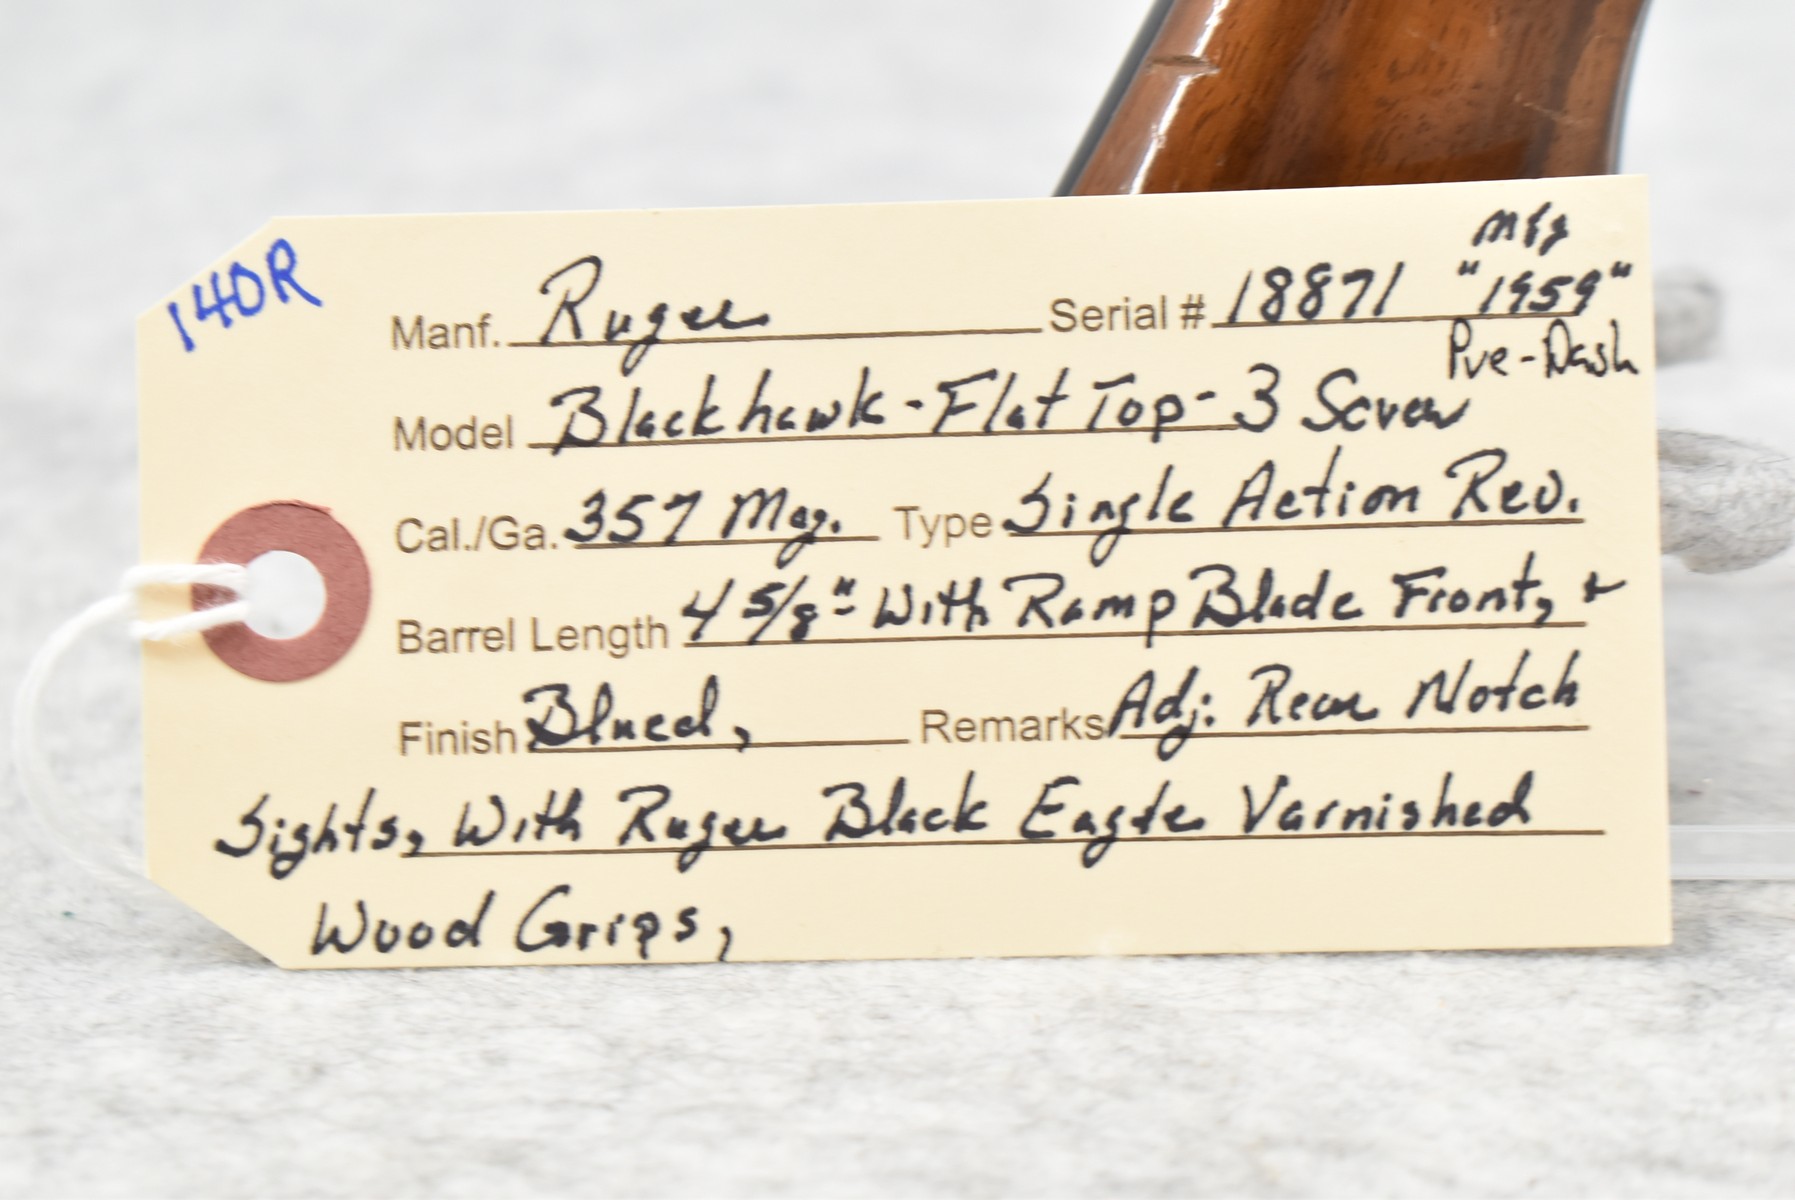 140R
Mfg
Manf. Ruger Serial # 18871 "1959"
Pre-Dash
Model Blackhawk - Flat Top - 3 Screw
Cal./Ga. 357 Mag. Type Single Action Rev.
Barrel Length 4 5/8" - With Ramp Blade Front, +
Finish Blued, Remarks Adj. Rear Notch
Sights, With Ruger Black Eagle Varnished
Wood Grips,